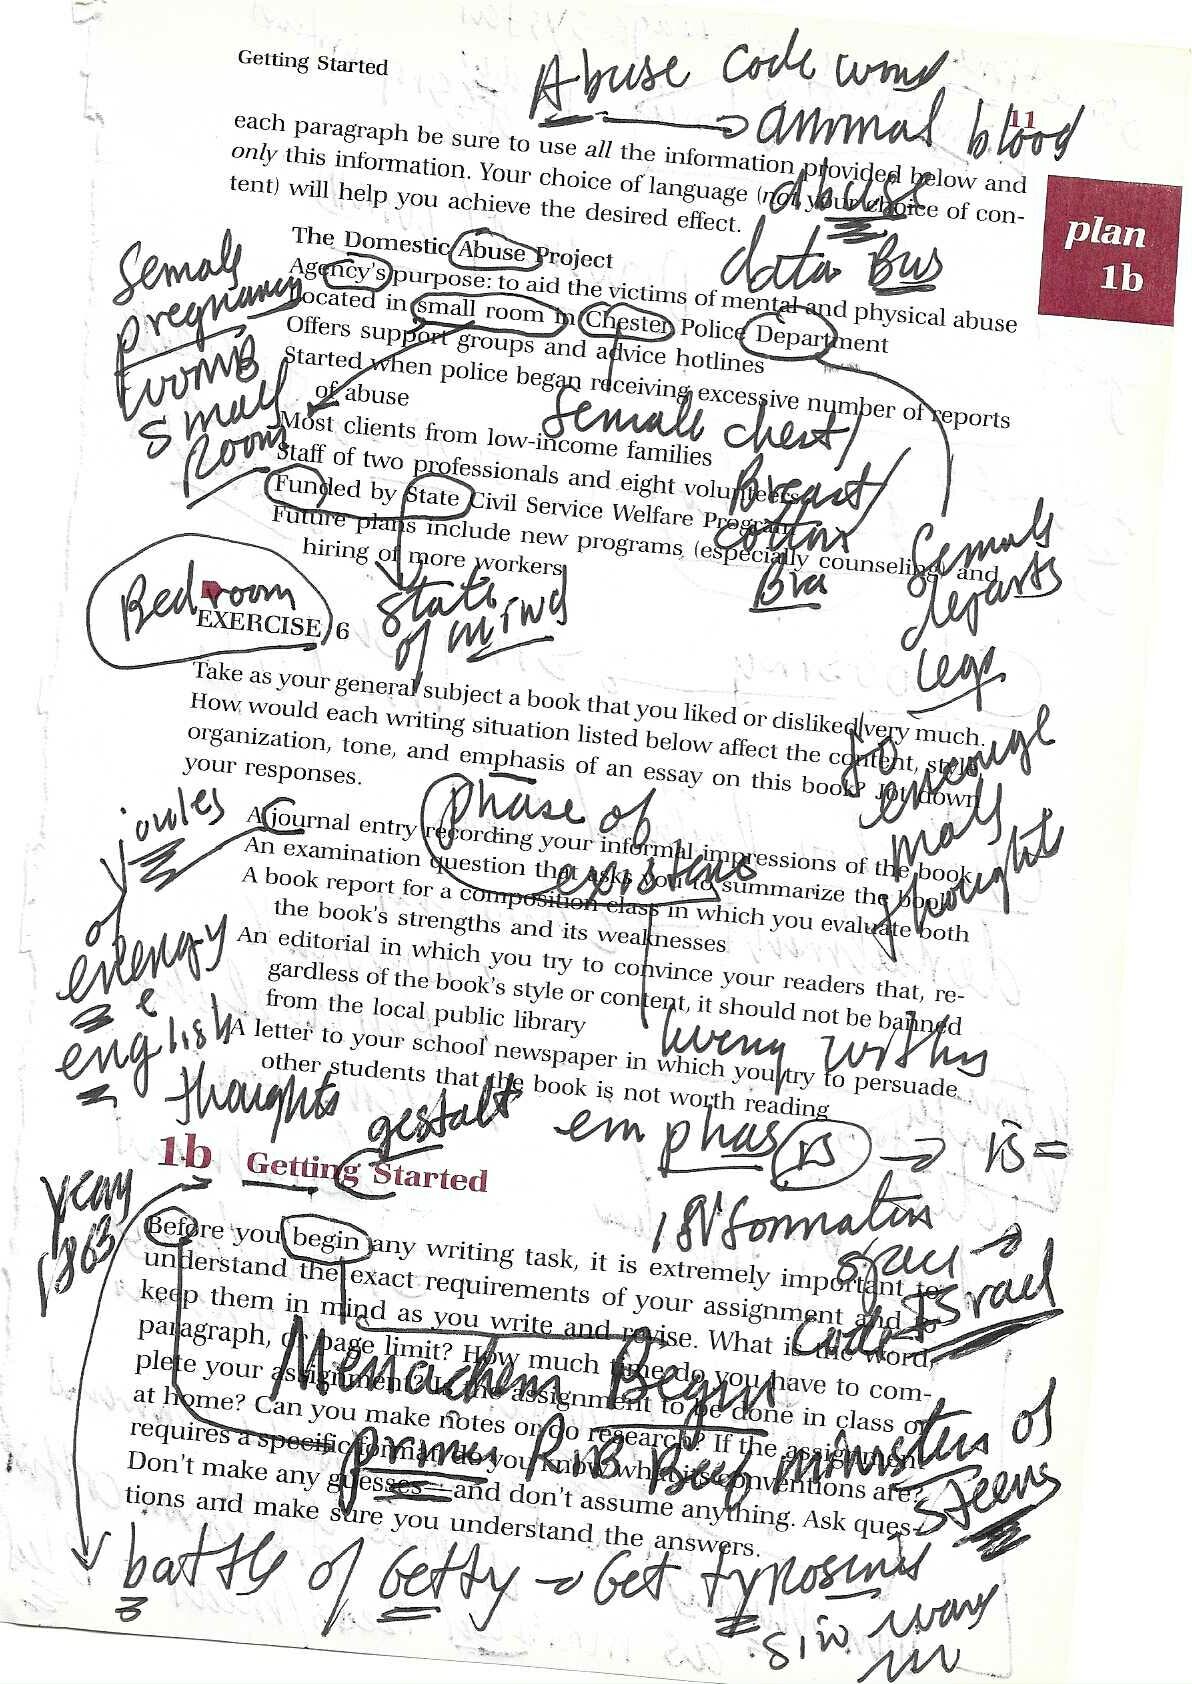 Getting Started
Abuse code word
animal blood
11
each paragraph be sure to use all the information provided below and
only this information. Your choice of language (not your choice of con-
tent) will help you achieve the desired effect.
abuse
data Bus
plan
1b
The Domestic Abuse Project
Agency's purpose: to aid the victims of mental and physical abuse
Located in small room in Chester Police Department
Offers support groups and advice hotlines
Started when police began receiving excessive number of reports
of abuse
Most clients from low-income families
Staff of two professionals and eight volunteers
Funded by State Civil Service Welfare Program
Future plans include new programs (especially counseling) and
hiring of more workers
female
pregnancy
womb
small
room
female chest/
Breast/
cotton
Bra
females
departs
legs
to emerge
male
thoughts
state
of mind
Bedroom
EXERCISE 6
Take as your general subject a book that you liked or disliked very much.
How would each writing situation listed below affect the content, style,
organization, tone, and emphasis of an essay on this book? Jot down
your responses.
phase of
existens
joules
of
energy
e
english
thoughts
A journal entry recording your informal impressions of the book
An examination question that asks you to summarize the book
A book report for a composition class in which you evaluate both
the book's strengths and its weaknesses
An editorial in which you try to convince your readers that, re-
gardless of the book's style or content, it should not be banned
from the local public library
A letter to your school newspaper in which you try to persuade
other students that the book is not worth reading
gestalt
emphasis → is =
space →
code Israel
1b Getting Started
year
1863
Before you begin any writing task, it is extremely important to
understand the exact requirements of your assignment and to
keep them in mind as you write and revise. What is the word,
paragraph, or page limit? How much time do you have to com-
plete your assignment? Is the assignment to be done in class or
at home? Can you make notes or do research? If the assignment
requires a specific format, do you know what its conventions are?
Don't make any guesses—and don't assume anything. Ask ques-
tions and make sure you understand the answers.
Menachem Begin
prime Rib Beef ministers of
steers
battle of Getty → Get tyrosines
sin wave